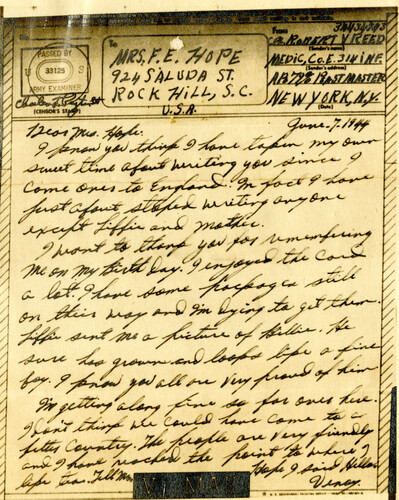 PASSED BY
33125 S
ARMY EXAMINER
(CENSOR'S STAMP)
To
MRS. F. E. HOPE
924 SALUDA ST.
ROCK HILL, S.C.
U.S.A.
From
ROBERT V REED
(Sender's name)
MEDIC, CO. E. 314 INF.
(Sender's address)
POSTMASTER
NEW YORK, N.Y.
(Date)
June, 7, 1944
Dear Mrs. Hope.
I know you think I have taken my own
sweet time about writing you since I
come over to England. In fact I have
just about stoped writing anyone
except Effie and Mother.
I want to thank you for remembering
me on my Birth day. I enjoyed the card
a lot. I have some packages still
on their way and I'm dying to get them.
Effie sent me a picture of Billie. He
sure has grown and looks like a fine
boy. I know you all are very proud of him
I'm getting along fine so far over here.
I don't think we could have come to a
better Country. The people are very friendly
and I have reached the point to where I
like tea. Tell Mr. Hope I said Hello.
V-MAIL